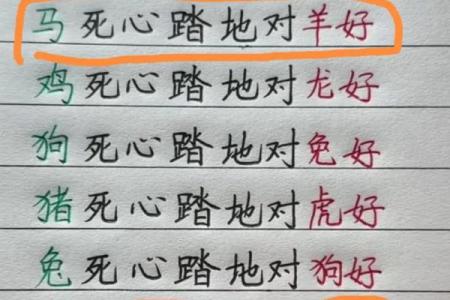 马死心踏地对羊好
鸡死心踏地对龙好
狗死心踏地对兔好
猪死心踏地对虎好
兔死心踏地对狗好